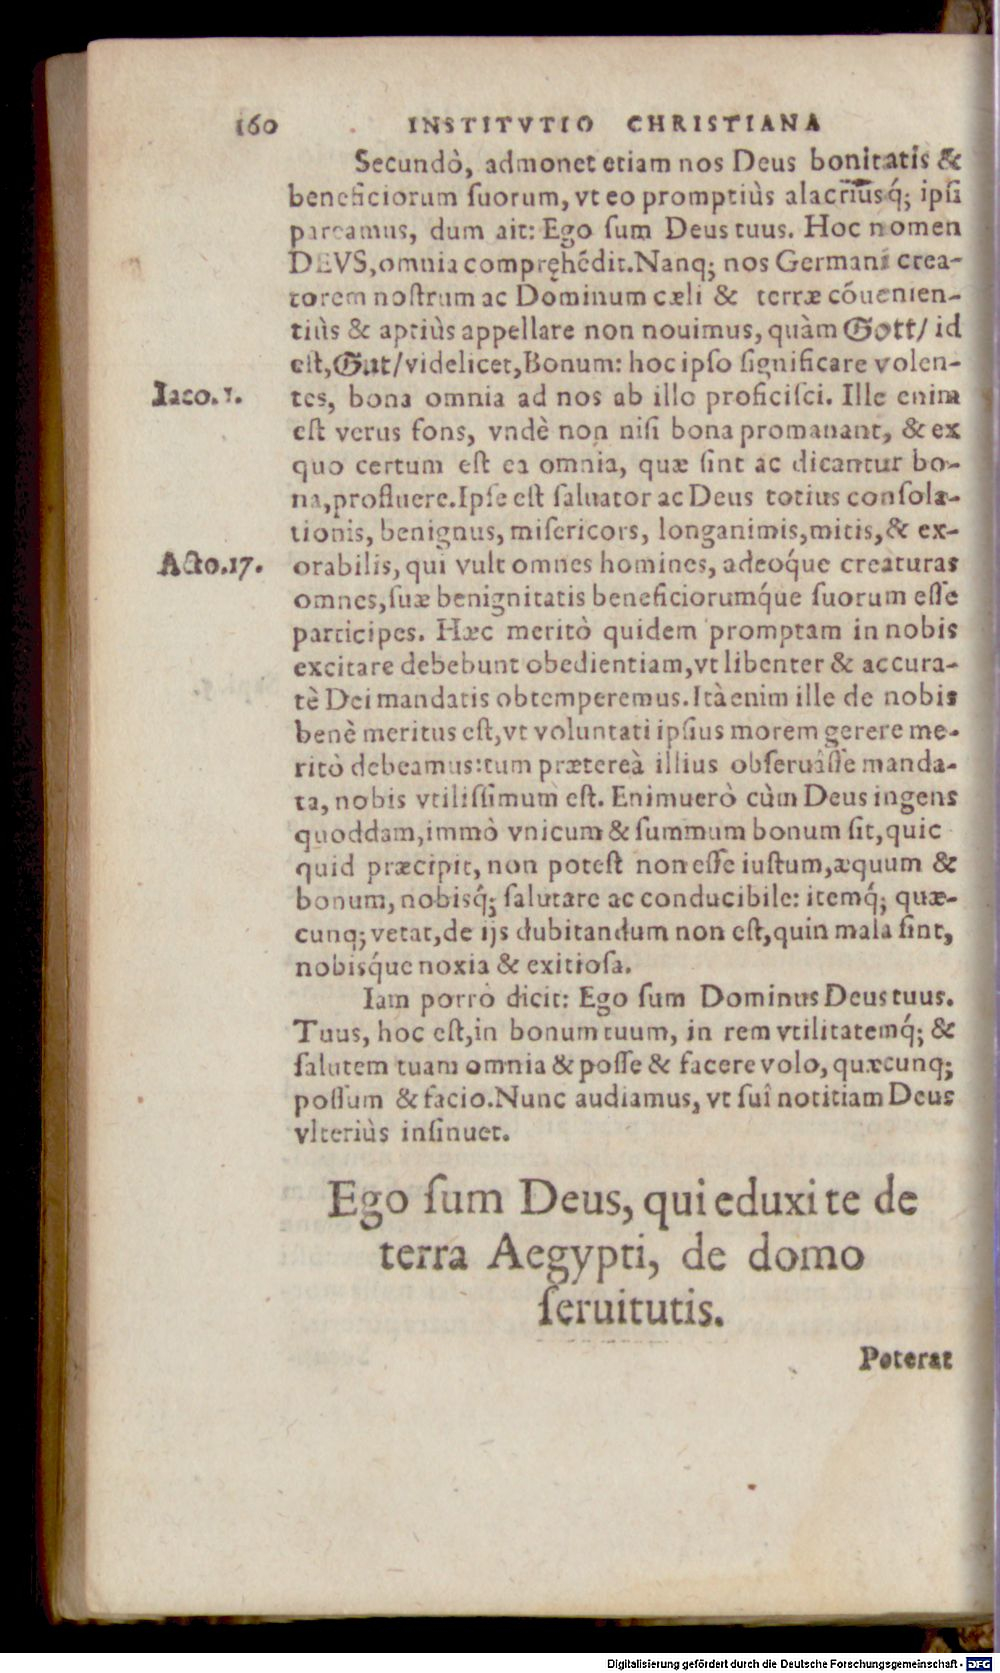 160 INSTITVTIO CHRISTIANA
Secundò, admonet etiam nos Deus bonitatis &
beneficiorum suorum, vt eo promptiùs alacriùsq́; ipsi
pareamus, dum ait: Ego sum Deus tuus. Hoc nomen
DEVS, omnia compręhēdit. Nanq; nos Germani crea-
torem nostrum ac Dominum cæli & terræ cōuenien-
tiùs & aptiùs appellare non nouimus, quàm Gott/ id
est, Gut/ videlicet, Bonum: hoc ipso significare volen-
Iaco. 1. tes, bona omnia ad nos ab illo proficisci. Ille enim
est verus fons, vndè non nisi bona promanant, & ex
quo certum est ea omnia, quæ sint ac dicantur bo-
na, profluere. Ipse est saluator ac Deus totius consola-
tionis, benignus, misericors, longanimis, mitis, & ex-
Acto. 17. orabilis, qui vult omnes homines, adeoq́ue creaturas
omnes, suæ benignitatis beneficiorumq́ue suorum esse
participes. Hæc meritò quidem promptam in nobis
excitare debebunt obedientiam, vt libenter & accura-
tè Dei mandatis obtemperemus. Ità enim ille de nobis
benè meritus est, vt voluntati ipsius morem gerere me-
ritò debeamus: tum prætereà illius obseruâsse manda-
ta, nobis vtilissimum est. Enimuerò cùm Deus ingens
quoddam, immò vnicum & summum bonum sit, quic
quid præcipit, non potest non esse iustum, æquum &
bonum, nobisq́; salutare ac conducibile: itemq́; quæ-
cunq; vetat, de ijs dubitandum non est, quin mala sint,
nobisq́ue noxia & exitiosa.
Iam porrò dicit: Ego sum Dominus Deus tuus.
Tuus, hoc est, in bonum tuum, in rem vtilitatemq́; &
salutem tuam omnia & posse & facere volo, quæcunq;
possum & facio. Nunc audiamus, vt suî notitiam Deus
vlteriùs insinuet.
Ego sum Deus, qui eduxi te de
terra Aegypti, de domo
seruitutis.
Poterat
Digitalisierung gefördert durch die Deutsche Forschungsgemeinschaft - DFG